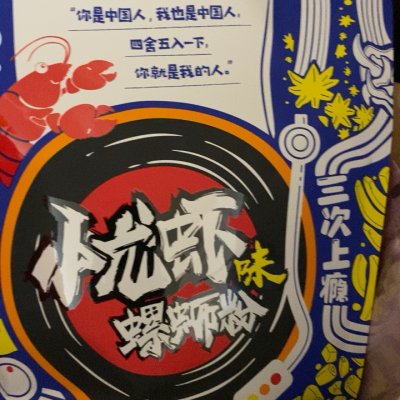 “你是中国人，我也是中国人，
四舍五入一下，
你就是我的人。”
小龙虾
味
螺蛳粉
三次上瘾